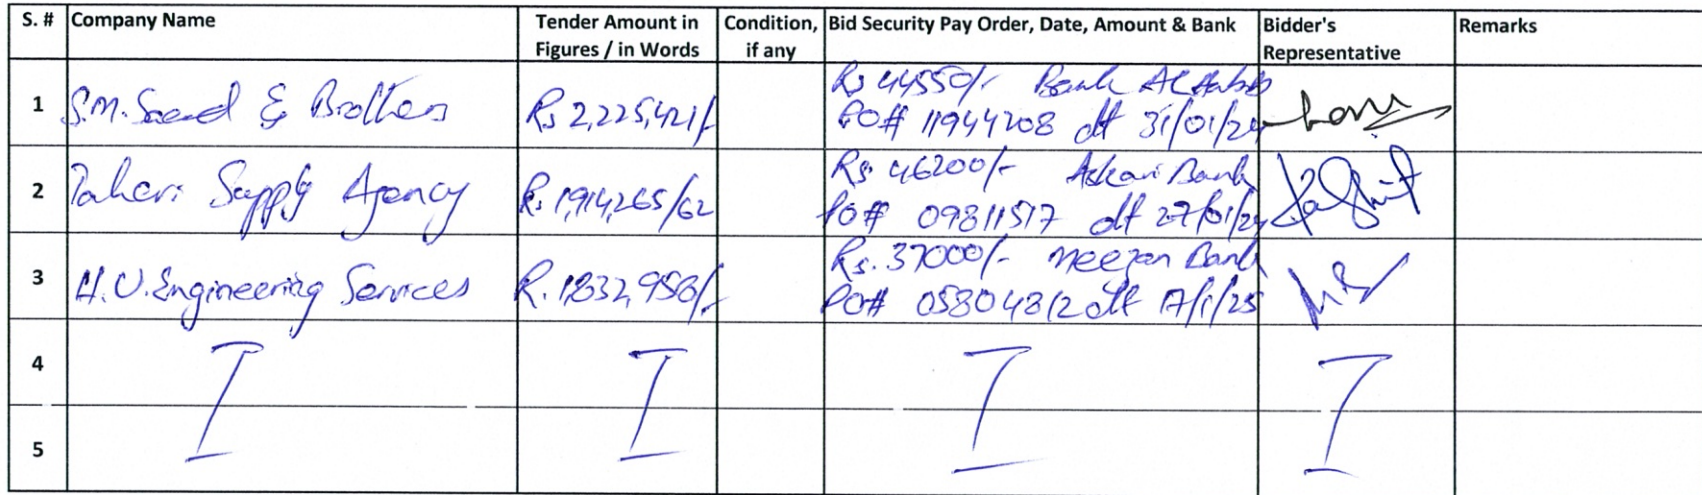 S. # Company Name Tender Amount in Figures / in Words Condition, if any Bid Security Pay Order, Date, Amount & Bank Bidder's Representative Remarks
1 S.M. Saeed & Brothers Rs 2,225,421/- Rs 44550/- Bank Al Habib
PO# 11944208 dt 31/01/24
2 Taheri Supply Agency Rs 1,914,265/62 Rs. 46200/- Askari Bank
PO# 09811517 dt 27/01/24
3 H.U. Engineering Services R. 1832,958/- Rs. 37000/- Meezan Bank
PO# 05804812 dt 17/1/25
4
5